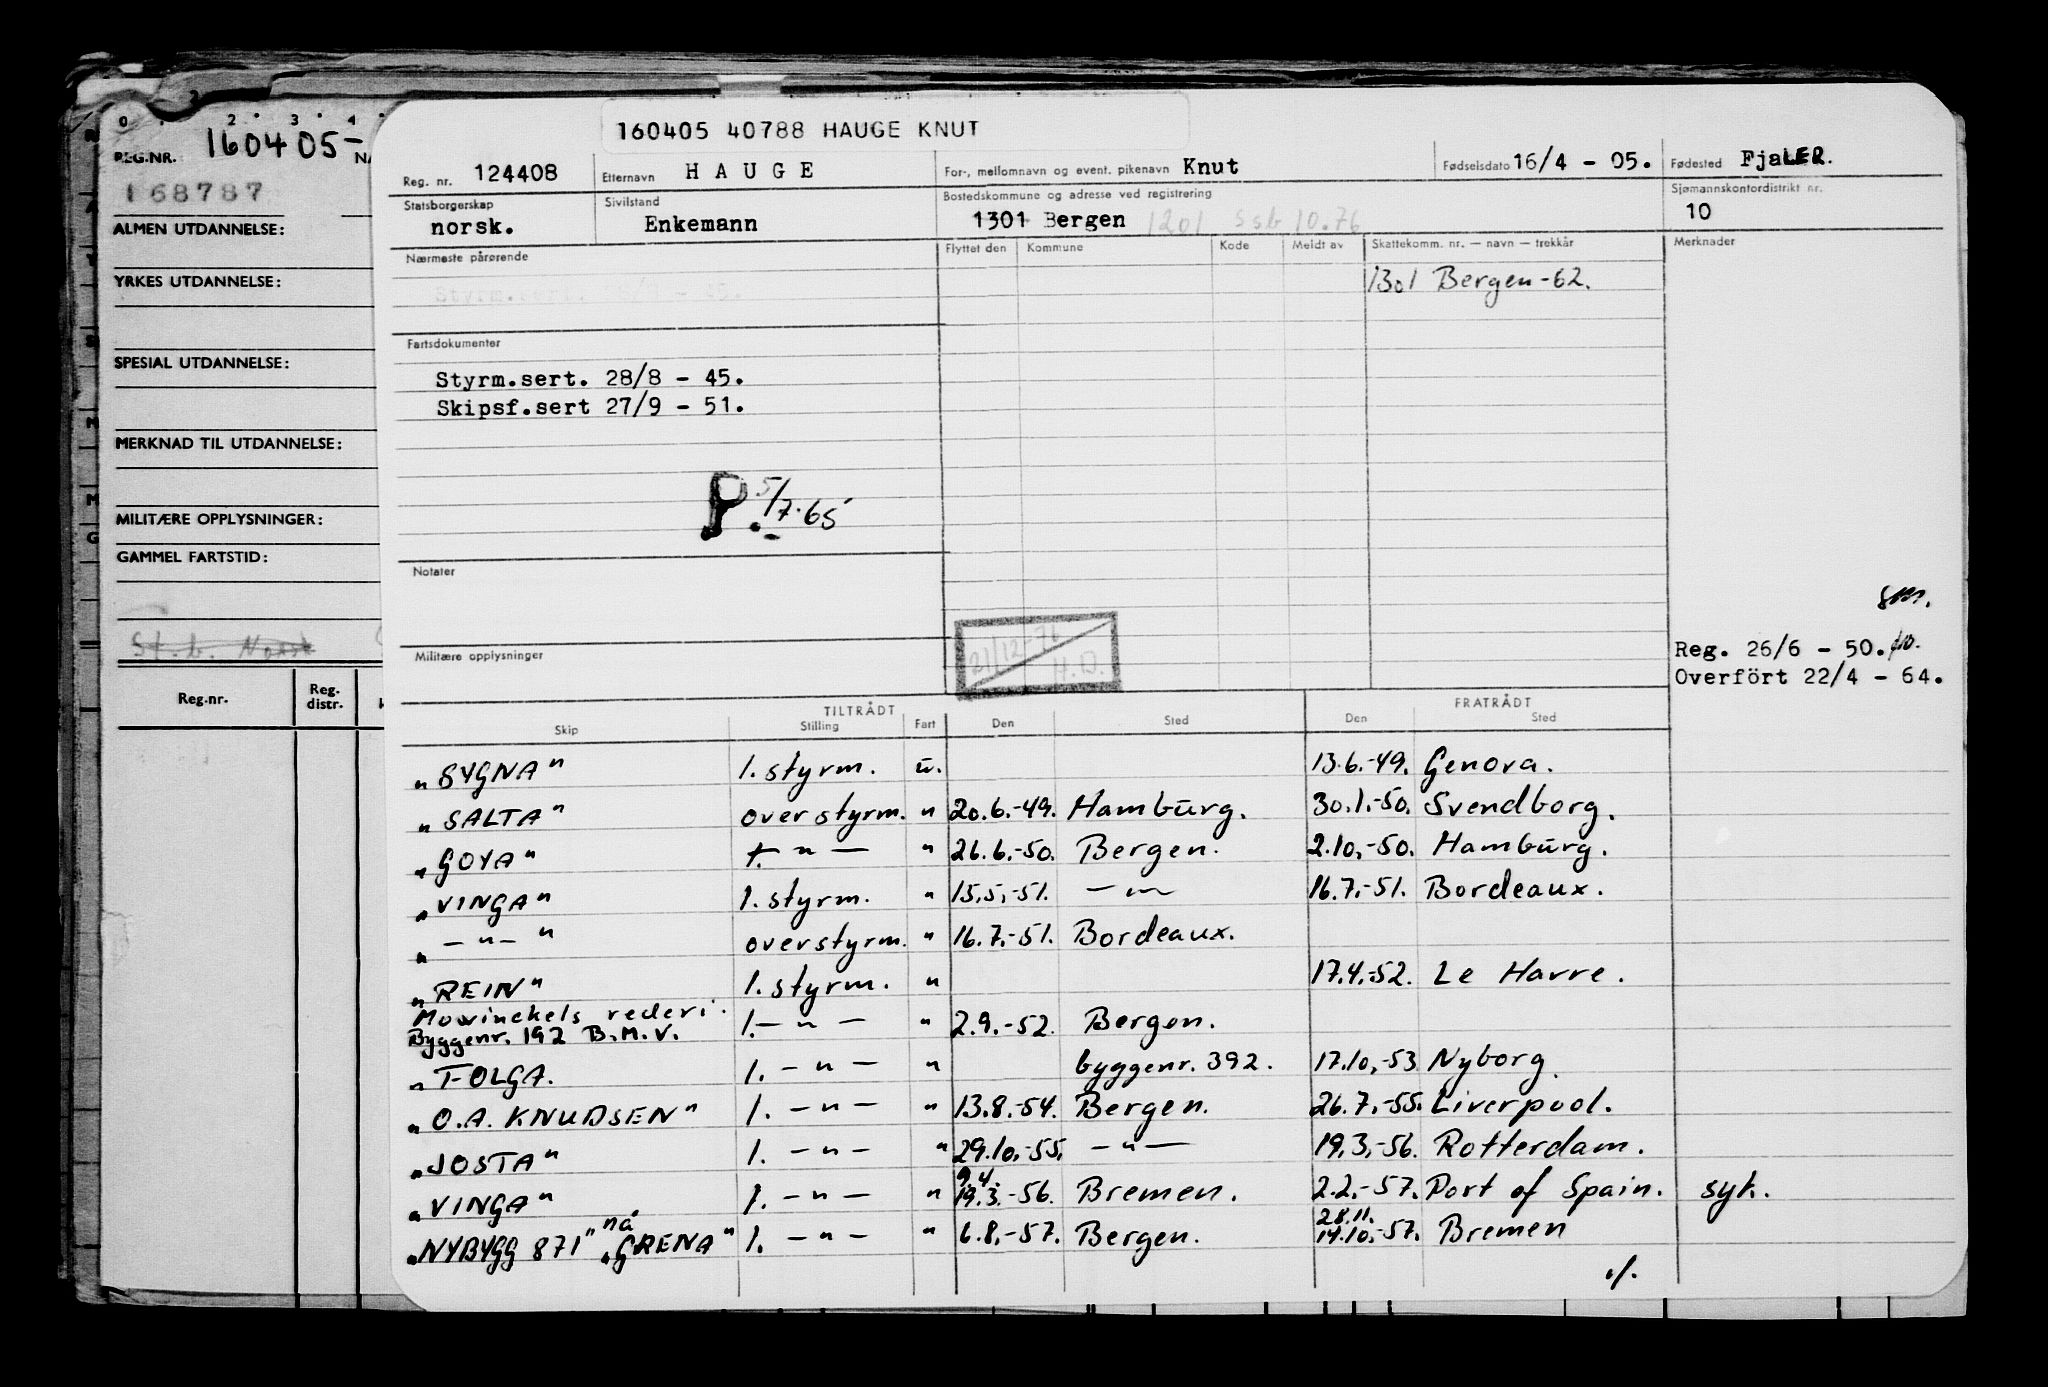 0 2 3 4
REG.NR. 160405-
168787
ALMEN UTDANNELSE:
YRKES UTDANNELSE:
SPESIAL UTDANNELSE:
MERKNAD TIL UTDANNELSE:
MILITÆRE OPPLYSNINGER:
GAMMEL FARTSTID:
St.b. Norsk
Reg.nr. Reg. distr.
160405 40788 HAUGE KNUT
Reg. nr. 124408 Etternavn HAUGE For-, mellomnavn og event. pikenavn Knut Fødselsdato 16/4 - 05. Fødested FjaLER.
Statsborgerskap norsk. Sivilstand Enkemann Bostedskommune og adresse ved registrering 1301 Bergen 1201 Ssb 10.76 Sjømannskontordistrikt nr. 10
Nærmeste pårørende Flyttet den Kommune Kode Meldt av Skattekomm. nr. — navn — trekkår Merknader
1301 Bergen-62.
Fartsdokumenter
Styrm.sert. 28/8 - 45.
Skipsf.sert 27/9 - 51.
P. 5/7.65
Notater
21/12-76 H.D.
Militære opplysninger
Reg. 26/6 - 50.
Overfört 22/4 - 64.
TILTRÅDT FRATRÅDT
Skip Stilling Fart Den Sted Den Sted
„SYGNA" 1. styrm. u. 13.6.-49. Genova.
„SALTA" overstyrm. " 20.6.-49. Hamburg. 30.1.-50. Svendborg.
„GOYA" 1. - " - " 26.6.-50. Bergen. 2.10.-50. Hamburg.
„VINGA" 1. styrm. " 15.5.-51. - " - 16.7.-51. Bordeaux.
„ - " - " overstyrm. " 16.7.-51. Bordeaux.
„REIN" 1. styrm. " 17.4.-52. Le Havre.
Mowinckels rederi.
Byggenr. 192 B.M.V. 1. - " - " 2.9.-52. Bergen.
„TOLGA. 1. - " - " byggenr. 392. 17.10.-53 Nyborg.
„O.A. KNUDSEN" 1. - " - " 13.8.-54. Bergen. 26.7.-55. Liverpool.
„JOSTA" 1. - " - " 29.10.-55. - " - 19.3.-56. Rotterdam.
„VINGA" 1. - " - " 9.4. 19.3.-56. Bremen. 2.2.-57. Port of Spain. syk.
„NYBYGG 871" nå „GRENA" 1. - " - " 6.8.-57. Bergen. 28.11. 14.10.-57. Bremen
./.